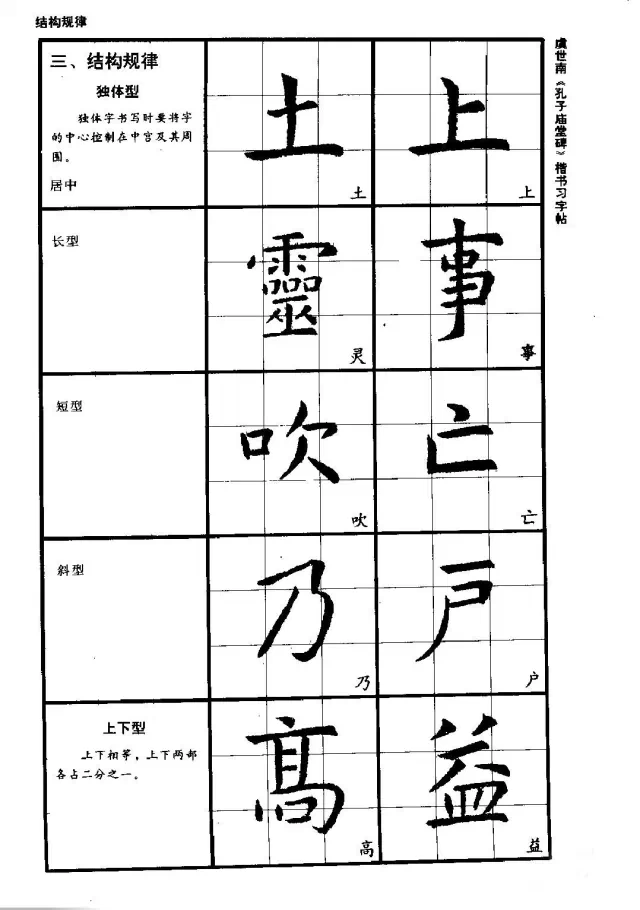 结构规律
虞世南《孔子庙堂碑》楷书习字帖
三、结构规律
独体型
独体字书写时要将字
的中心控制在中宫及其周
围。
居中
土
土
上
上
长型
靈
灵
事
事
短型
吹
吹
亡
亡
斜型
乃
乃
戸
户
上下型
上下相等，上下两部
各占二分之一。
髙
高
益
益